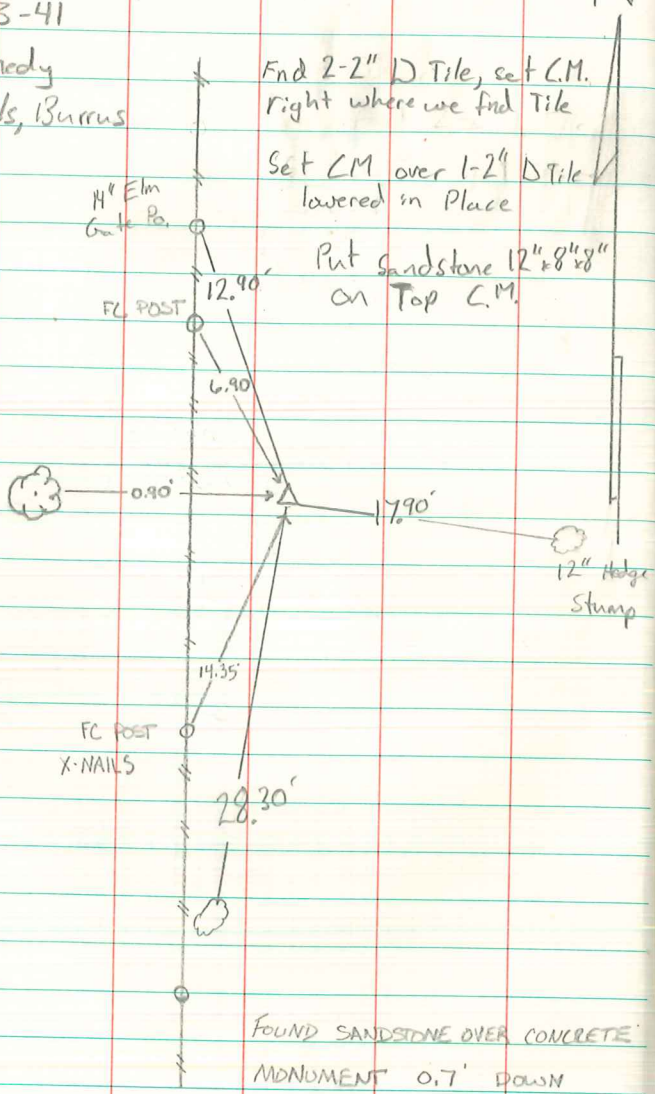 3-41
nedy
ls, Burrus
Fnd 2-2" D Tile, set C.M.
right where we fnd Tile
Set CM over 1-2" D Tile
lowered in Place
Put Sandstone 12"x8"x8"
on Top C.M.
14" Elm
Gate Po.
12.90'
FC POST
6.90
0.90'
17.90'
12" Hedge
Stump
14.35'
FC POST
X-NAILS
28.30'
FOUND SANDSTONE OVER CONCRETE
MONUMENT 0.7' DOWN